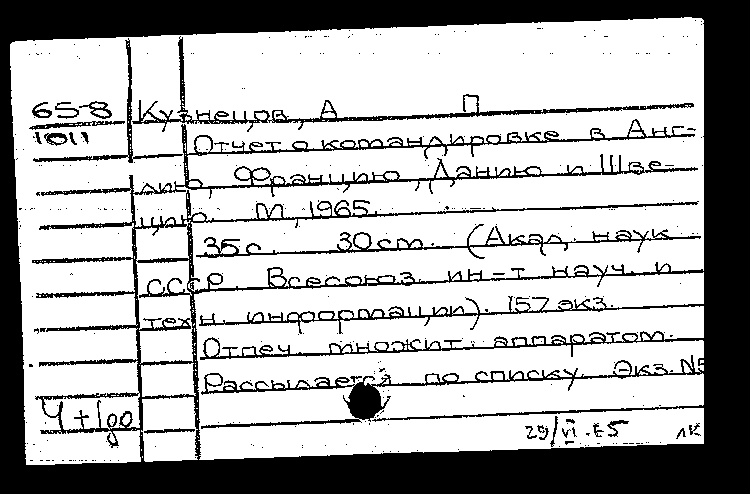 65-8 Кузнецов, А П
1011 Отчет о командировке в Анг-
лию, Францию, Данию и Шве-
цию. М, 1965.
35с. 30см. (Акад. наук
СССР. Всесоюз. ин-т науч. и
техн. информации). 157 экз.
Отпеч. множит. аппаратом.
Рассылается по списку. Экз. №
Ч+1
29/VI.65 ЛК